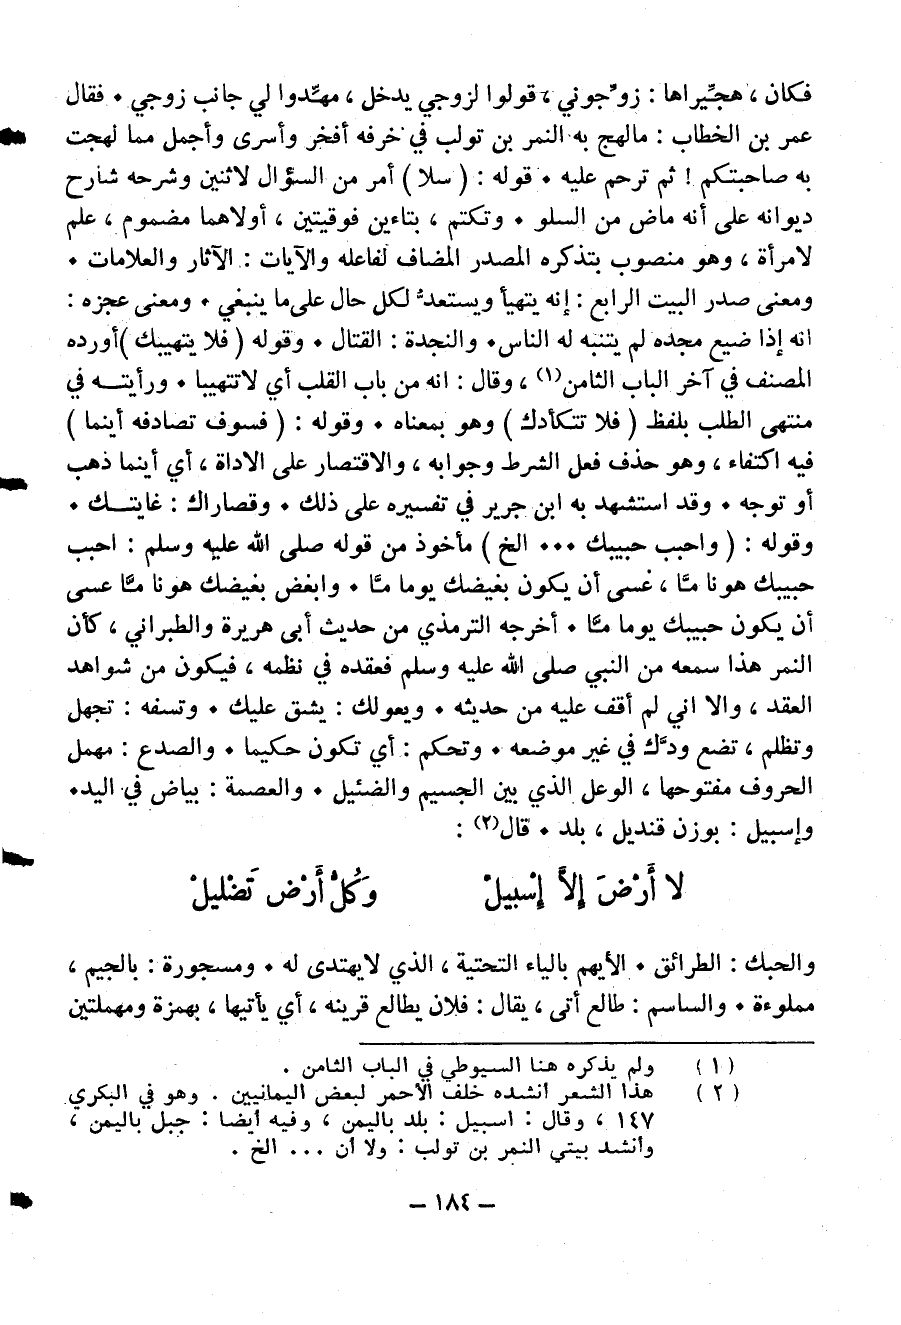 فكان ، هجِّيراها : زوّجوني ، قولوا لزوجي يدخل ، مهِّدوا لي جانب زوجي • فقال
عمر بن الخطاب : مالهج به النمر بن تولب في خرفه أفخر وأسرى وأجمل مما لهجت
به صاحبتكم ! ثم ترحم عليه • قوله : ( سلا ) أمر من السؤال لاثنين وشرحه شارح
ديوانه على أنه ماض من السلو • وتكتم ، بتاءين فوقيتين ، أولاهما مضموم ، علم
لامرأة ، وهو منصوب بتذكره المصدر المضاف لفاعله والآيات : الآثار والعلامات •
ومعنى صدر البيت الرابع : إنه يتهيأ ويستعدّ لكل حال على ما ينبغي • ومعنى عجزه :
انه إذا ضيع مجده لم يتنبه له الناس • والنجدة : القتال • وقوله ( فلا يتهيبك )أورده
المصنف في آخر الباب الثامن(١) ، وقال : انه من باب القلب أي لاتتهيبا • ورأيتــه في
منتهى الطلب بلفظ ( فلا تتكأدك ) وهو بمعناه • وقوله : ( فسوف تصادفه أينما )
فيه اكتفاء ، وهو حذف فعل الشرط وجوابه ، والاقتصار على الاداة ، أي أينما ذهب
أو توجه • وقد استشهد به ابن جرير في تفسيره على ذلك • وقصاراك : غايتــك •
وقوله : ( واحبب حبيبك ••• الخ ) مأخوذ من قوله صلى الله عليه وسلم : احبب
حبيبك هونا مّا ، عسى أن يكون بغيضك يوما مّا • وابغض بغيضك هونا مّا عسى
أن يكون حبيبك يوما مّا • أخرجه الترمذي من حديث أبي هريرة والطبراني ، كأن
النمر هذا سمعه من النبي صلى الله عليه وسلم فعقده في نظمه ، فيكون من شواهد
العقد ، والا اني لم أقف عليه من حديثه • ويعولك : يشق عليك • وتسفه : تجهل
وتظلم ، تضع ودّك في غير موضعه • وتحكم : أي تكون حكيما • والصدع : مهمل
الحروف مفتوحها ، الوعل الذي بين الجسيم والضئيل • والعصمة : بياض في اليد•
وإسبيل : بوزن قنديل ، بلد • قال(٢) :
لا أَرْضَ إِلاَّ إِسْبِيلْ وَكُلُّ أَرْضٍ تَضْلِيلْ
والحبك : الطرائق • الأيهم بالياء التحتية ، الذي لايهتدى له • ومسجورة : بالجيم ،
مملوءة • والساسم : طالع أتى ، يقال : فلان يطالع قرينه ، أي يأتيها ، بهمزة ومهملتين
(١) ولم يذكره هنا السيوطي في الباب الثامن .
(٢) هذا الشعر أنشده خلف الأحمر لبعض اليمانيين . وهو في البكري
١٤٧ ، وقال : اسبيل : بلد باليمن ، وفيه أيضا : جبل باليمن ،
وأنشد بيتي النمر بن تولب : ولا أن ... الخ .
– ١٨٤ –